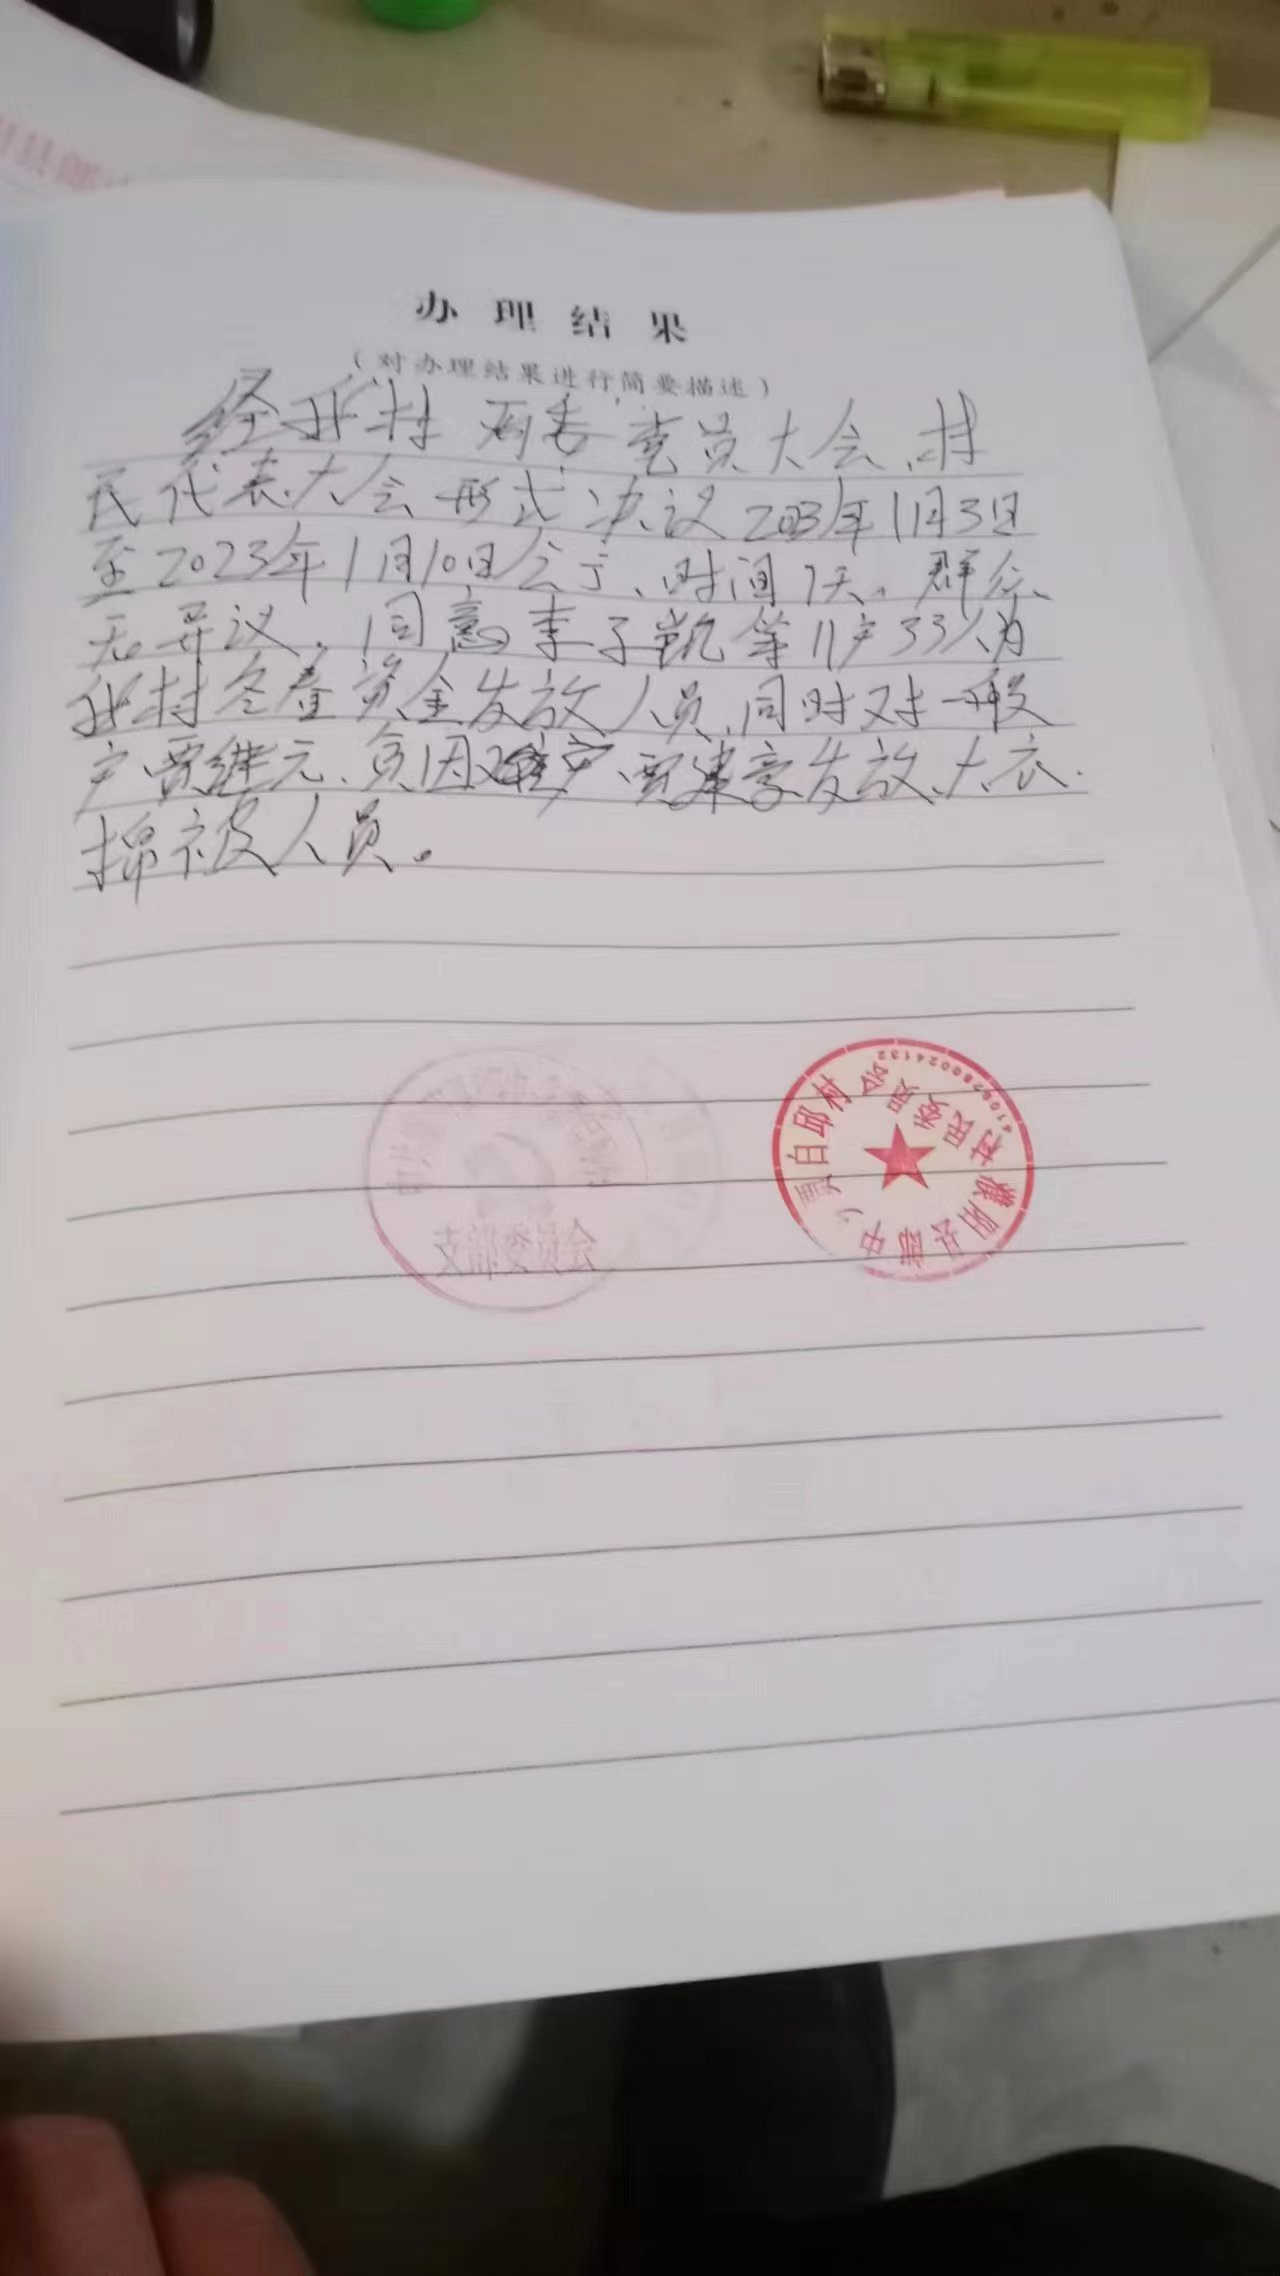 办理结果
（对办理结果进行简要描述）
经我村两委、党员大会、村
民代表大会形式决议2023年1月3日
至2023年1月10日公示、时间7天。群众
无异议。同意李子凯等11户33人为
我村冬春资金发放人员，同时对一般
户贾继元、贫困户贾建豪发放大衣.
棉被人员。
支部委员会
濮阳县郎中乡贯白邱村村民委员会